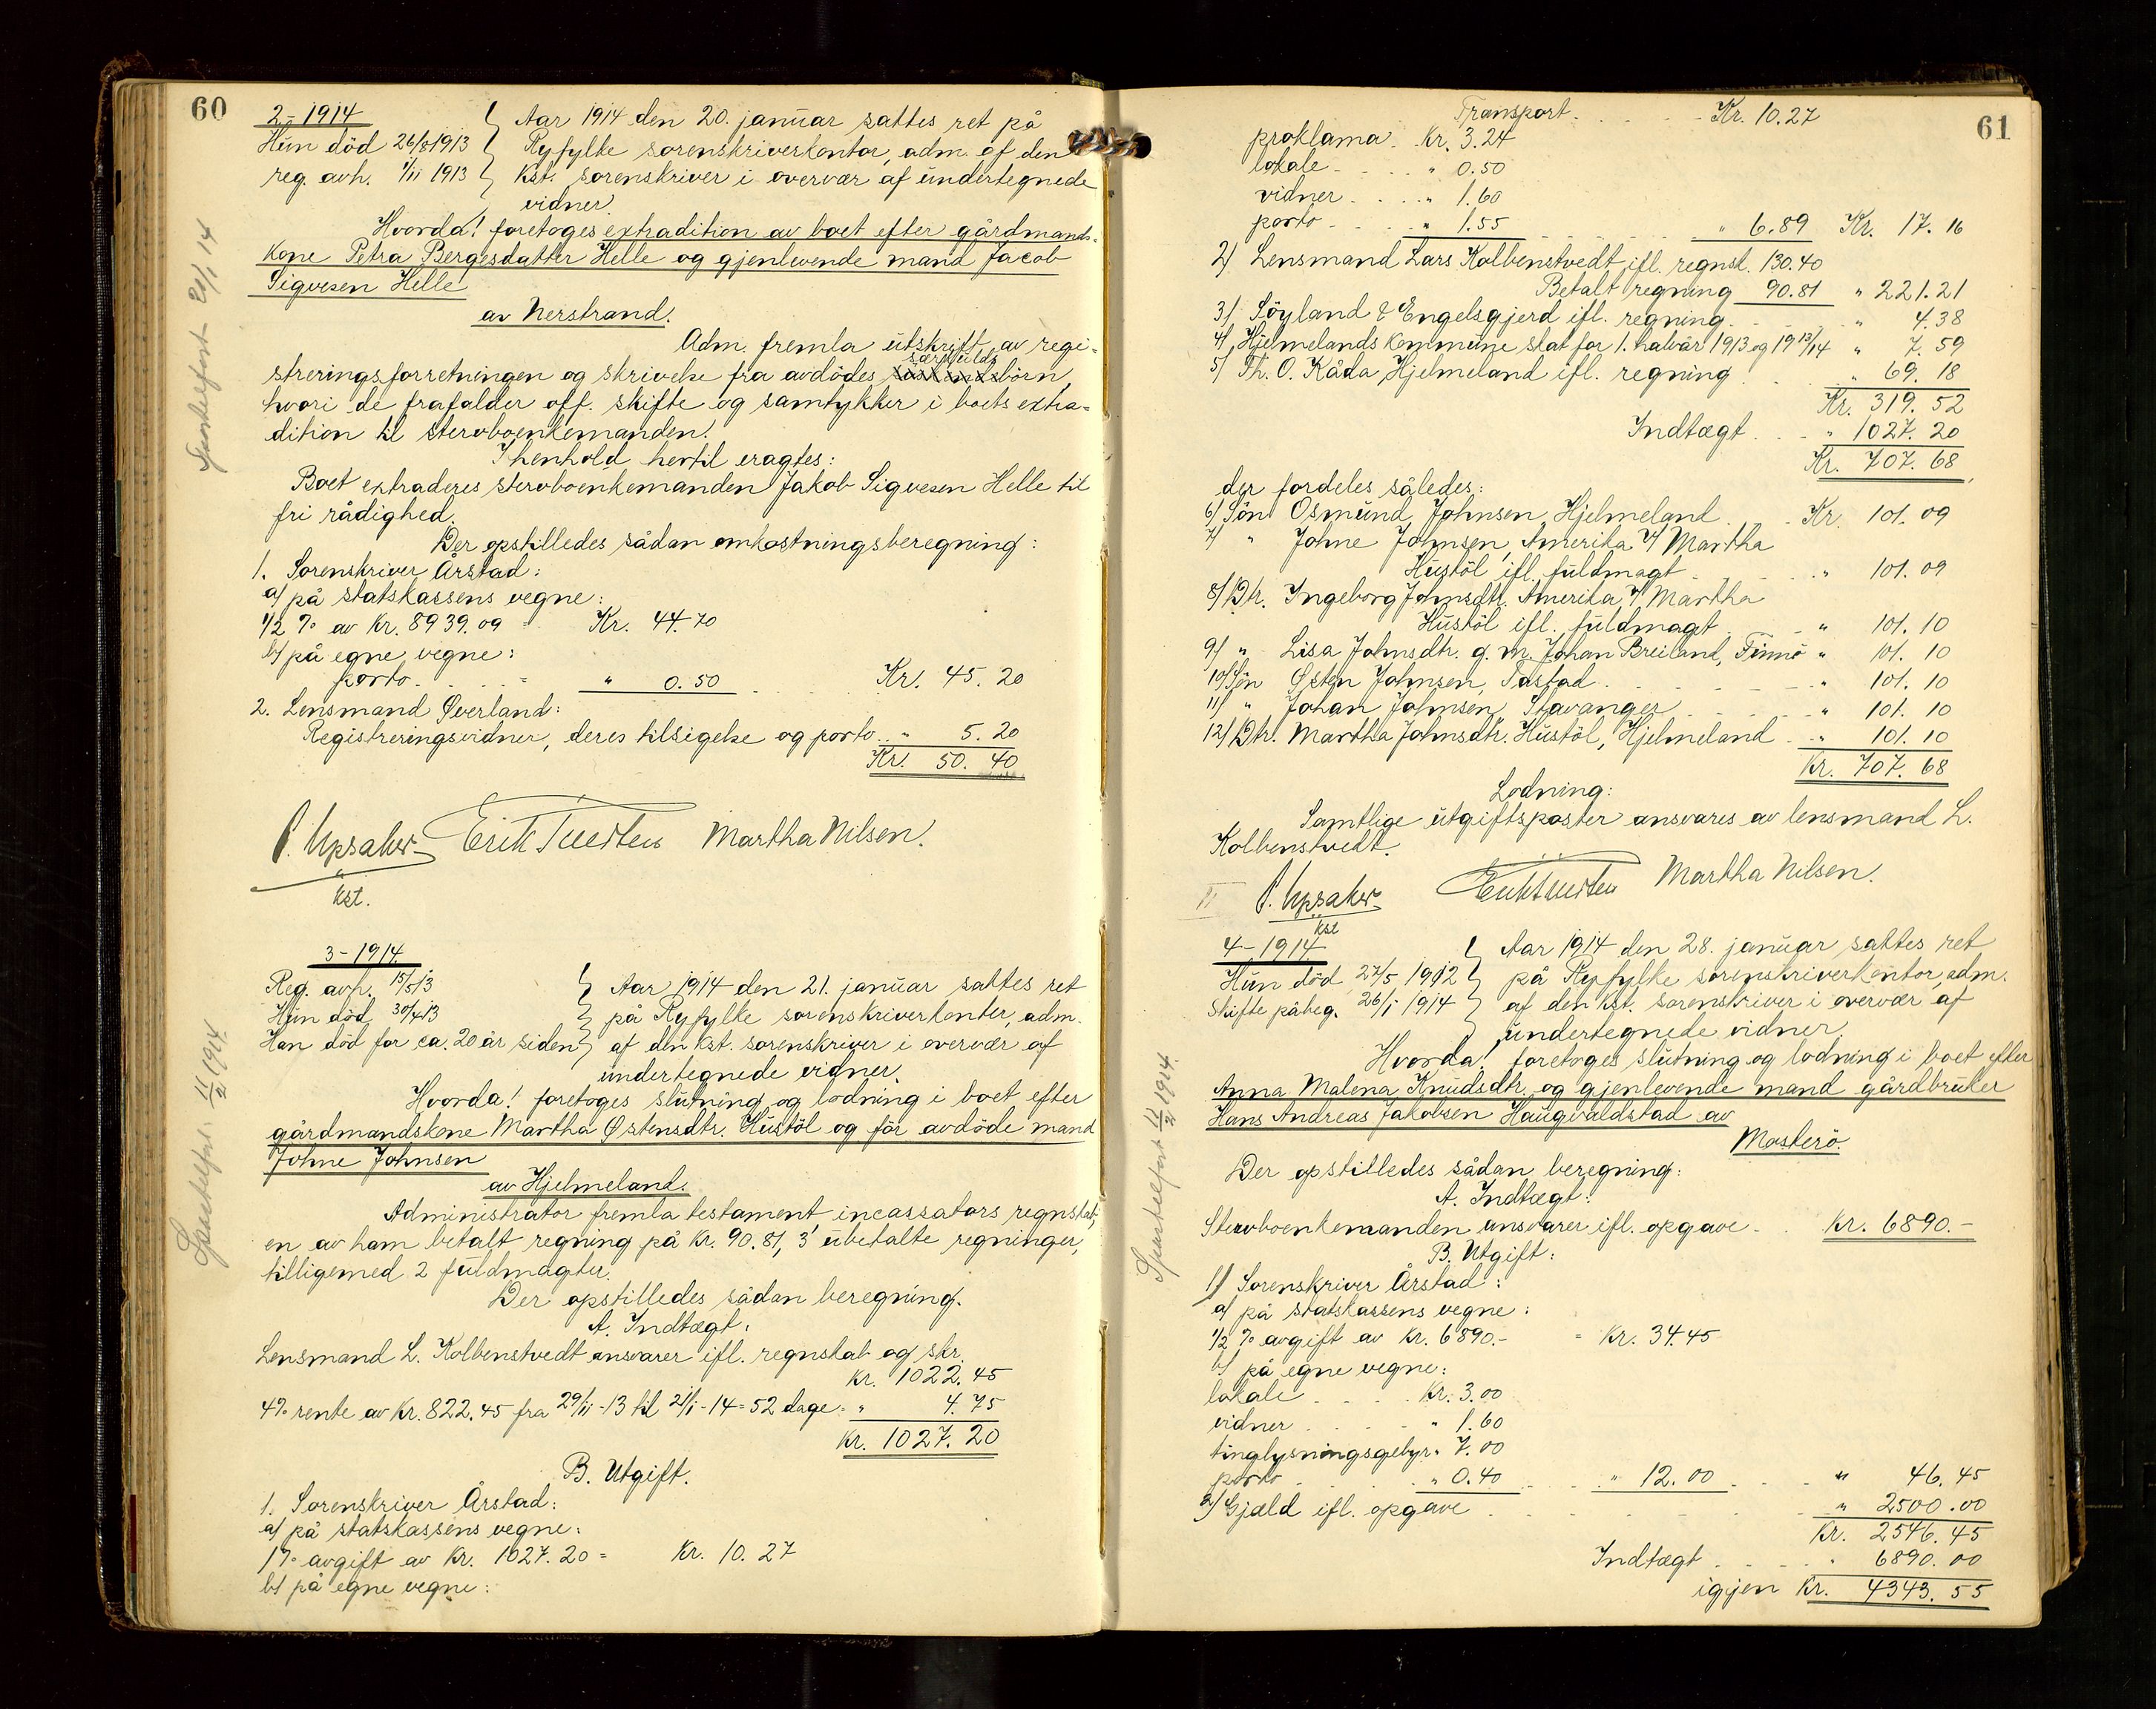 60
2 - 1914
Hun död 26/8 1913
reg. avh. 1/11 1913
Aar 1914 den 20. januar sattes ret på
Ryfylke sorenskriverkontor, adm. af den
Kst. sorenskriver i overvær af undertegnede
vidner.
Hvorda! foretoges extradition av boet efter gårdmands-
kone Petra Bergesdatter Helle og gjenlevende mand Jacob
Sigvesen Helle
av Nerstrand.
Adm. fremla utskrift av regi-
streringsforretningen og skrivelse fra avdödes særkulds börn,
hvori de frafalder off. skifte og samtykker i boets extra-
dition til stervboenkemanden.
I henhold hertil eragtes:
Boet extraderes stervboenkemanden Jakob Sigvesen Helle til
fri rådighed.
Der opstilledes sådan omkostningsberegning:
1. Sorenskriver Årstad:
a/ på statskassens vegne:
1/2 % av Kr. 8939.09 = Kr. 44.70
b/ på egne vegne:
porto . . . . - " 0.50 . Kr. 45.20
2. Lensmand Øverland:
Registreringsvidner, deres tilsigelse og porto . . " 5.20
Kr. 50.40
Martha Nilsen.
Kst.
3 - 1914
Reg. avh. 15/5 13
Hun död 30/4 13
Han död for ca. 20 år siden
Aar 1914 den 21. januar sattes ret
på Ryfylke sorenskriverkontor, adm.
af den Kst. sorenskriver i overvær af
undertegnede vidner.
Hvorda! foretoges slutning og lodning i boet efter
gårdmandskone Martha Østensdtr. Hustöl og för avdöde mand
Johne Johnsen
av Hjelmeland.
Administrator fremla testament incassators regnskab,
en av ham betalt regning på Kr. 90.81, 3 ubetalte regninger,
tilligemed 2 fuldmagter.
Der opstilledes sådan beregning.
A. Indtægt:
Lensmand L. Kolbenstvedt ansvarer ifl. regnskab og skr.
Kr. 1022.45
4% rente av Kr. 822.45 fra 29/11-13 til 21/1-14 = 52 dage = " 4.75
Kr. 1027.20
B. Utgift.
1. Sorenskriver Årstad:
a/ på statskassens vegne:
1% avgift av Kr. 1027.20 = Kr. 10.27
b/ på egne vegne:
21/1 14
11/2 1914.
61
Transport . . . . - Kr. 10.27
proklama . Kr. 3.24
lokale - . . . " 0.50
vidner . . . . " 1.60
porto - . . . " 1.55 " 6.89 Kr. 17.16
2/ Lensmand Lars Kolbenstvedt ifl. regnsk. 130.40
Betalt regning 90.81 " 221.21
3/ Söyland & Engelsgjerd ifl. regning . " 4.38
4/ Hjelmelands Kommune skat for 1. halvår 1913 og 1913/14 " 7.59
5/ Th. O. Kåda, Hjelmeland ifl. regning . . . " 69.18
Kr. 319.52
Indtægt . . - " 1027.20
Kr. 707.68
der fordeles således:
6/ Sön Osmund Johnsen, Hjelmeland . . Kr. 101.09
7/ " Johne Johnsen, Amerika v/ Martha
Hustöl ifl. fuldmagt . . . " 101.09
8/ Dtr. Ingeborg Johnsdtr. Amerika v/ Martha
Hustöl ifl. fuldmagt . . - " 101.10
9/ " Lisa Johnsdtr. g. m. Johan Breiland, Finnö " 101.10
10/ Sön Østen Johnsen, Tastad . . . . " 101.10
11/ " Johan Johnsen, Stavanger . . . " 101.10
12/ Dtr. Martha Johnsdtr. Hustöl, Hjelmeland . . " 101.10
Kr. 707.68
Lodning:
Samtlige utgiftsposter ansvares av lensmand L.
Kolbenstvedt.
Martha Nilsen.
Kst
4 - 1914.
Hun död 27/5 1912
Skifte påbeg. 26/1 1914
Aar 1914 den 28. januar sattes ret
på Ryfylke sorenskriverkontor, adm.
af den Kst. sorenskriver i overvær af
undertegnede vidner.
Hvorda! foretoges slutning og lodning i boet efter
Anna Malena Knudsdtr. og gjenlevende mand gårdbruker
Hans Andreas Jakobsen Haugvaldstad av
Mosterö.
Der opstilledes sådan beregning:
A. Indtægt:
Stervboenkemanden ansvarer ifl. opgave . . Kr. 6890.-
B. Utgift:
1/ Sorenskriver Årstad:
a/ på statskassens vegne:
1/2 % avgift av Kr. 6890.- = Kr. 34.45
b/ på egne vegne:
lokale . . . . Kr. 3.00
vidner . . . . " 1.60
tinglysningsgebyr. " 7.00
porto . . . . " 0.40 . . " 12.00 . . . " 46.45
2/ Gjæld ifl. opgave . . . . . " 2500.00
Kr. 2546.45
Indtægt . . . . " 6890.00
igjen Kr. 4343.55
11/2 1914.